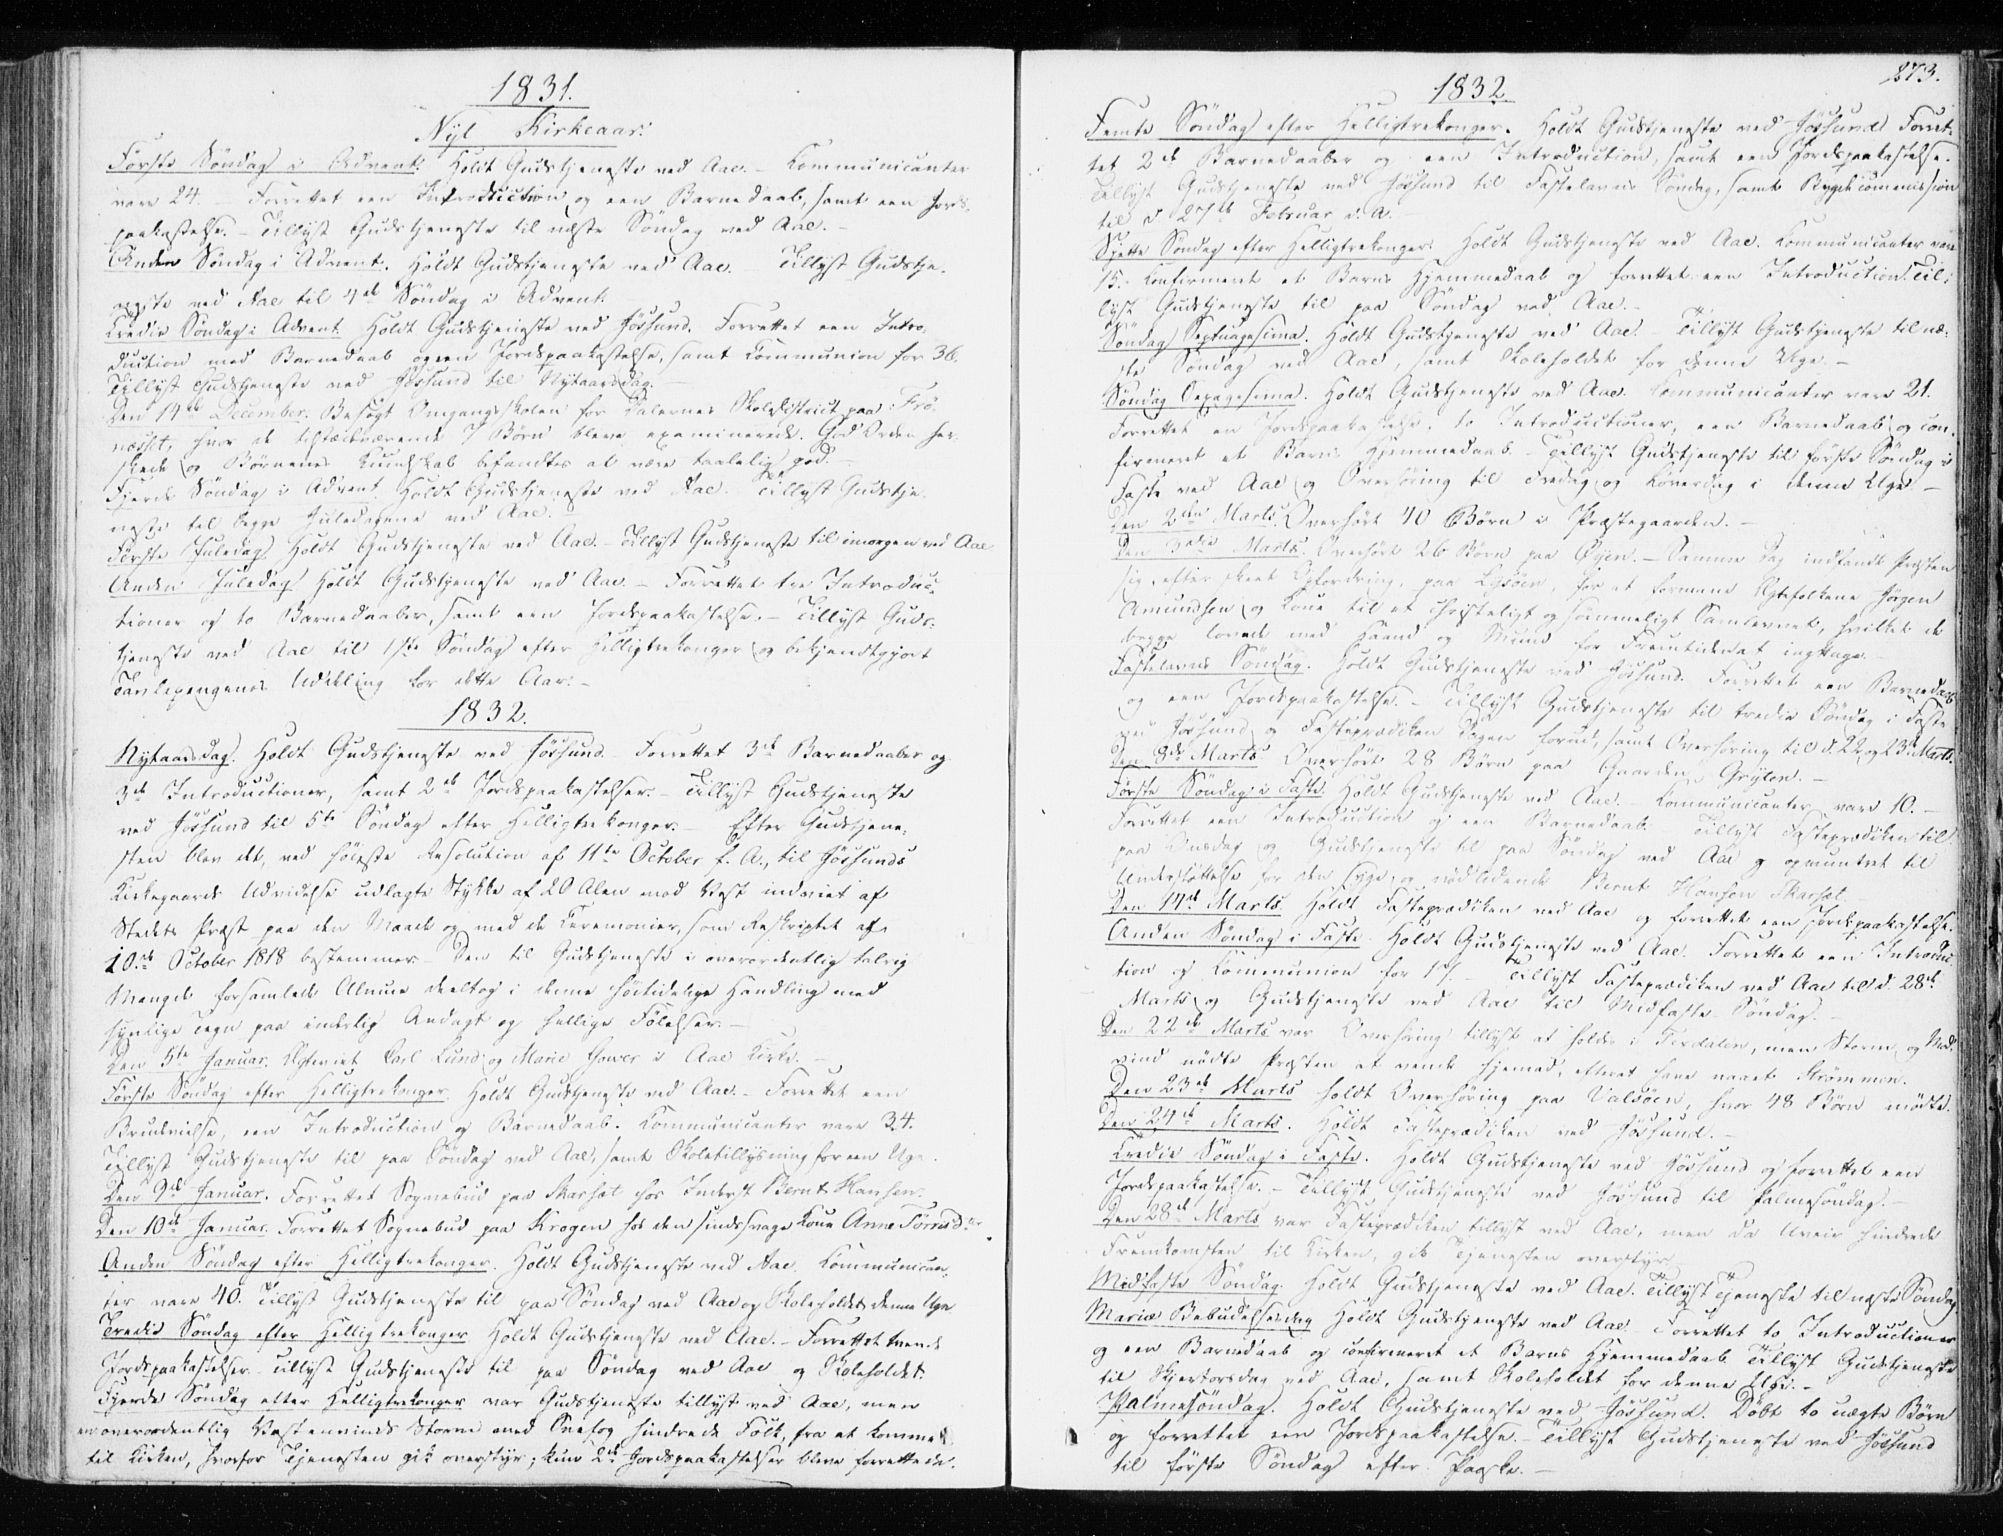 1831.
Nyt Kirkeaar:
Förste Söndag i Advent: Holdt Gudstjeneste ved Aae. – Kommunicanter
vare 24. – Forrettet een Introduction og een Barnedaab, samt een Jords-
paakastelse. – Tillyst Gudstjeneste til næste Söndag ved Aae. –
Anden Söndag i Advent: Holdt Gudstjeneste ved Aae. – Tillyst Gudstje-
neste ved Aae til 4de Söndag i Advent.
Tredie Söndag i Advent. Holdt Gudstjeneste ved Jössund. Forrettet een Intro-
duction med Barnedaab og een Jordspaakastelse, samt Communion for 36.
Tillyst Gudstjeneste ved Jössund til Nytaarsdag. –
Den 14de December. Besögt Omgangsskolen for Dalernes Skoledistrict paa Frö-
næsset, hvor de tilstedeværende 7 Börn bleve examinerede. God Orden her-
skede og Börnenes Kundskab befandtes at være taalelig god. –
Fjerde Söndag i Advent. Holdt Gudstjeneste ved Aae. Tillyst Gudstje-
neste til begge Juledagene ved Aae.
Förste Juledag. Holdt Gudstjeneste ved Aae. – Tillyst Gudstjeneste til imorgen ved Aae
Anden Juledag. Holdt Gudstjeneste ved Aae. – Forrettet tre Introduc-
tioner og to Barnedaaber, samt een Jordspaakastelse. – Tillyst Guds-
tjeneste ved Aae til 1ste Söndag efter Helligtrekonger og bekjendtgjort
Udsikling for dette Aar. –
1832.
Nytaarsdag. Holdt Gudstjeneste ved Jössund. Forrettet 3de Barnedaaber og
3de Introductioner, samt 2de Jordspaakastelser. – Tillyst Gudstjeneste
ved Jössund til 5te Söndag efter Helligtrekonger. – Efter Gudstjene-
sten blev det, ved höieste Resolution af 11te October f. A., til Jössunds
Kirkegaards Udvidelse udlagte Stykke af 20 Alen mod Vest indviet af
Stedets Præst paa den Maade og med de Ceremonier, som Reskriptet af
10de October 1818 bestemmer. – Den til Gudstjeneste i overordentlig talrig
Mængde forsamlede Almue deeltog i denne höitidelige Handling med
synlige Tegn paa inderlig Andagt og hellige Fölelser. –
Den 5te Januar. Egteviet Carl Lund og Marie i Aae Kirke. –
Förste Söndag efter Helligtrekonger. Holdt Gudstjeneste ved Aae. – Forrettet een
Brudevielse, een Introduction og Barnedaab. Kommunicanter vare 34.
Tillyst Gudstjeneste til paa Söndag ved Aae, samt Skoletillysning for een Uge.
Den 9de Januar. Forrettet Sognebud paa Skarset hos Inderst Bernt Hansen.
Den 10de Januar. Forrettet Sognebud paa Krogen hos den sindssvage Kone Anne Törresd:tr
Anden Söndag efter Helligtrekonger. Holdt Gudstjeneste ved Aae. Kommunican-
ter vare 40. Tillyst Gudstjeneste til paa Söndag ved Aae og Skoleholdet denne Uge
Tredie Söndag efter Helligtrekonger. Holdt Gudstjeneste ved Aae. – Forrettet tvende
Jordspaakastelser. Tillyst Gudstjeneste til paa Söndag ved Aae og Skoleholdet.
Fjerde Söndag efter Helligtrekonger var Gudstjeneste tillyst ved Aae, men
en overordentlig Vestenvinds Storm med Snefog hindrede Folk fra at komme
til Kirken, hvorfor Tjenesten gik overstyr; kun 2de Jordspaakastelser bleve forrettede.
273.
1832.
Femte Söndag efter Helligtrekonger. Holdt Gudstjeneste ved Jössund. Forret-
tet 2de Barnedaaber og een Introduction, samt een Jordspaakastelse.
Tillyst Gudstjeneste ved Jössund til Fastelavns Söndag, samt
til d 27de Februar d. A.
Sjette Söndag efter Helligtrekonger. Holdt Gudstjeneste ved Aae. Kommunicanter vare
15. Konfirmeret et Barns Hjemmedaab og forrettet een Introduction. Til-
lyst Gudstjeneste til paa Söndag ved Aae. –
Söndag Septuagesima. Holdt Gudstjeneste ved Aae. – Tillyst Gudstjeneste til næ-
ste Söndag ved Aae, samt Skoleholdet for denne Uge. –
Söndag Sexagesima. Holdt Gudstjeneste ved Aae. Communicanter vare 21.
Forrettet en Jordspaakastelse, to Introductioner, een Barnedaab og con-
firmeret et Barns Hjemmedaab. – Tillyst Gudstjeneste til förste Söndag i
Faste ved Aae og Overhöring til Fredag og Löverdag i denne Uge. –
Den 2den Marts. Overhört 40 Börn i Præstegaarden. –
Den 3die Marts. Overhört 26 Börn paa Öyen. – Samme Dag indfandt Præsten
sig, efter skeet Opfordring, paa Lysöen, for at formane Egtefolkene Jörgen
Amundsen og Kone til et christeligt og sömmeligt Samlevnet, hvilket de
begge lovede med Haand og Mund for Fremtiden at iagttage. –
Fastelavns Söndag. Holdt Gudstjeneste ved Jössund. Forrettet een Barnedaab
og een Jordspaakastelse. – Tillyst Gudstjeneste til tredie Söndag i Faste
ved Jössund og Fasteprædiken Dagen forud, samt Overhöring til d. 22 og 23de Marts.
Den 8de Marts. Overhört 28 Börn paa Gaarden Gryten. –
Förste Söndag i Faste. Holdt Gudstjeneste ved Aae. – Kommunicanter vare 10. –
Forrettet een Introduction og een Barnedaab. Tillyst Fasteprædiken til
paa Onsdag og Gudstjeneste til paa Söndag ved Aae og opmuntret til
Understöttelse for den syge og nödlidende Bernt Hansen Skarset.
Den 14de Marts. Holdt Fasteprædiken ved Aae og forrettet een Jordspaakastelse.
Anden Söndag i Faste. Holdt Gudstjeneste ved Aae. Forrettet een Introduc-
tion og Kommunion for 17. – Tillyst Fasteprædiken ved Aae til d. 28de
Marts og Gudstjeneste ved Aae til Midfaste Söndag. –
Den 22de Marts var Overhöring tillyst at holdes i Terdalen, men Storm og Mod-
vind nödte Præsten at vende hjemad, efterat have naaet Strömmen.
Den 23de Marts holdt Overhöring paa Valsöen, hvor 48 Börn mödte.
Den 24de Marts. Holdt Fasteprædiken ved Jössund. –
Tredie Söndag i Faste. Holdt Gudstjeneste ved Jössund og forrettet een
Jordspaakastelse. – Tillyst Gudstjeneste ved Jössund til Palmesöndag. –
Den 28de Marts var Fasteprædiken tillyst ved Aae, men da Uveir hindrede
Fremkomsten til Kirken, gik Tjenesten overstyr.
Midfaste Söndag. Holdt Gudstjeneste ved Aae. Tillyst Tjeneste til næste Söndag
Mariæ Bebudelsesdag. Holdt Gudstjeneste ved Aae. Forrettet to Introductioner
og een Barnedaab og confirmeret et Barns Hjemmedaab. Tillyst Gudstjeneste
til Skjertorsdag ved Aae, samt Skoleholdet for denne Uge. –
Palmesöndag. Holdt Gudstjeneste ved Jössund. Döbt to uægte Börn
og forrettet een Jordspaakastelse. – Tillyst Gudstjeneste ved Jössund
til förste Söndag efter Paaske. –